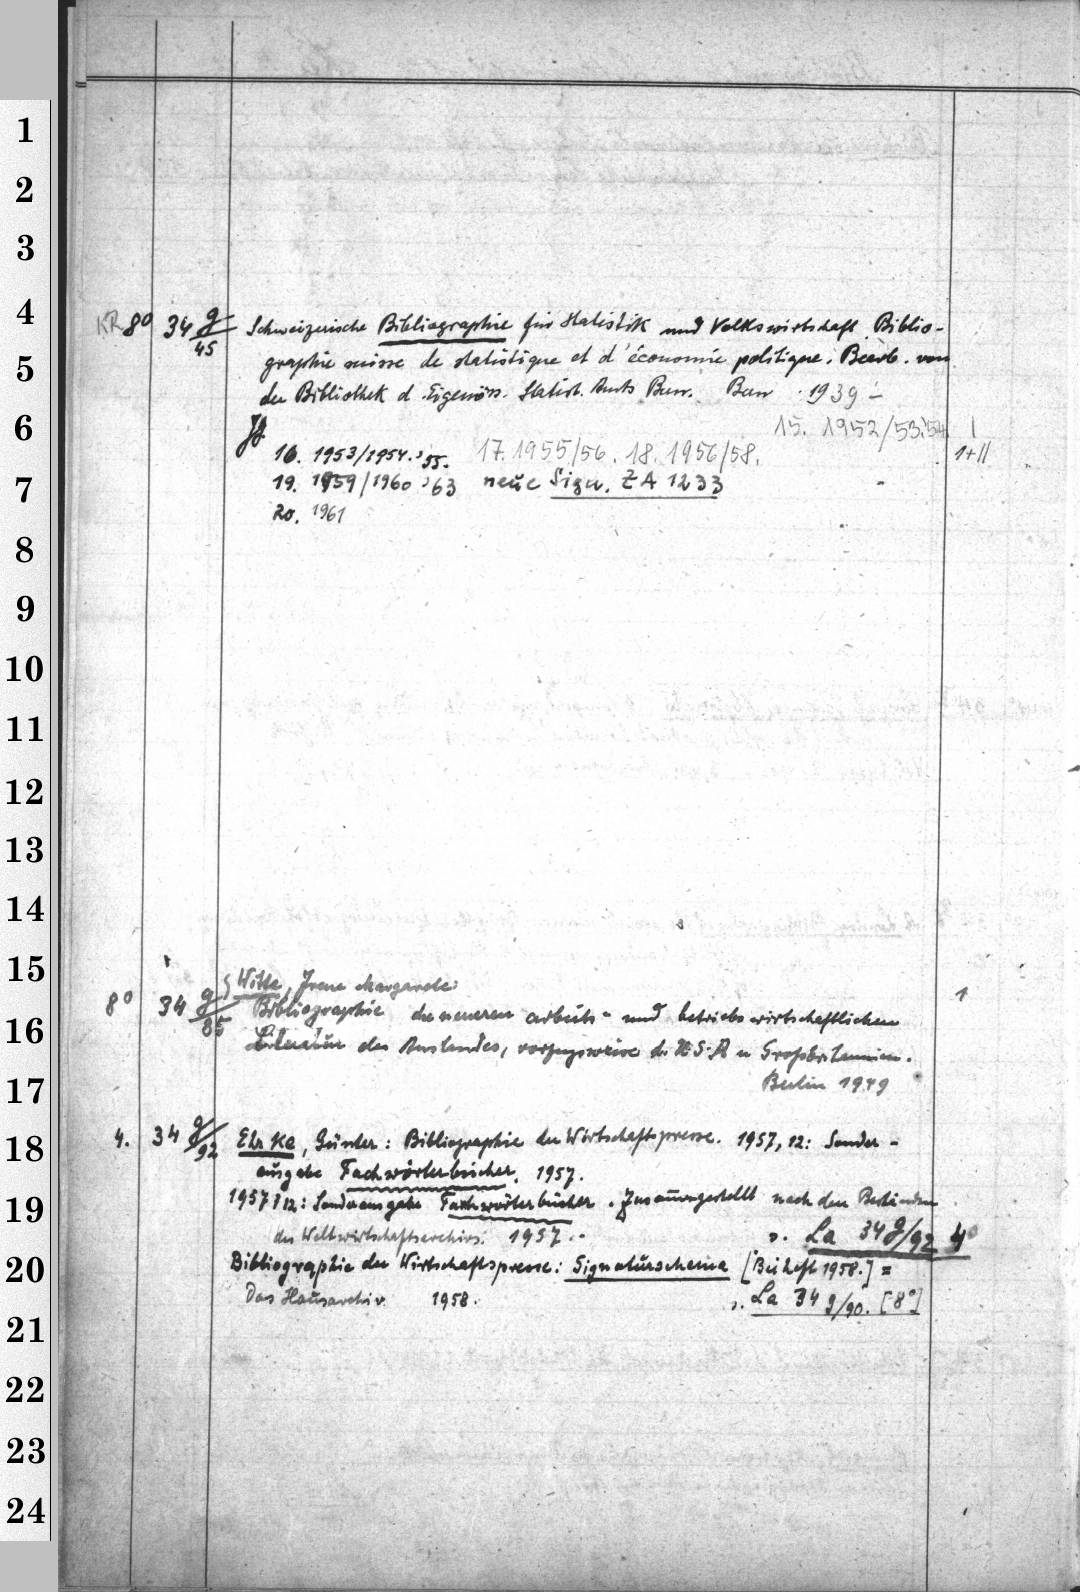 1
2
3
4
5
6
7
8
9
10
11
12
13
14
15
16
17
18
19
20
21
22
23
24
KR 8° 34 g/45 Schweizerische Bibliographie für Statistik und Volkswirtschaft. Biblio-
graphie suisse de statistique et d'économie politique. Bearb. von
der Bibliothek d. Eigenöss. Statist. Amts Bern. Bern 1939 -
Jg. 15. 1952/53.'54. I
16. 1953/1954.'55. 17. 1955/56. 18. 1956/58. 1+II
19. 1959/1960 '63 neue Sign. ZA 1233
20. 1961
Witte, Irene Margarete:
8° 34 g/85 Bibliographie der neueren arbeits- und betriebswirtschaftlichen 1
Literatur des Auslandes, vorzugsweise d. USA u Großbritannien.
Berlin 1949
4. 34 g/92 Ehrke, Günter: Bibliographie der Wirtschaftspresse. 1957, 12: Sonder-
ausgabe Fachwörterbücher. 1957.
1957/12: Sonderausgabe Fachwörterbücher. Zusammengestellt nach den Beständen
des Weltwirtschaftsarchivs. 1957. s. La 34 g/92 4°
Bibliographie der Wirtschaftspresse: Signaturschema [Beiheft 1958.] =
Das Hausarchiv 1958. s. La 34 g/90. [8°]